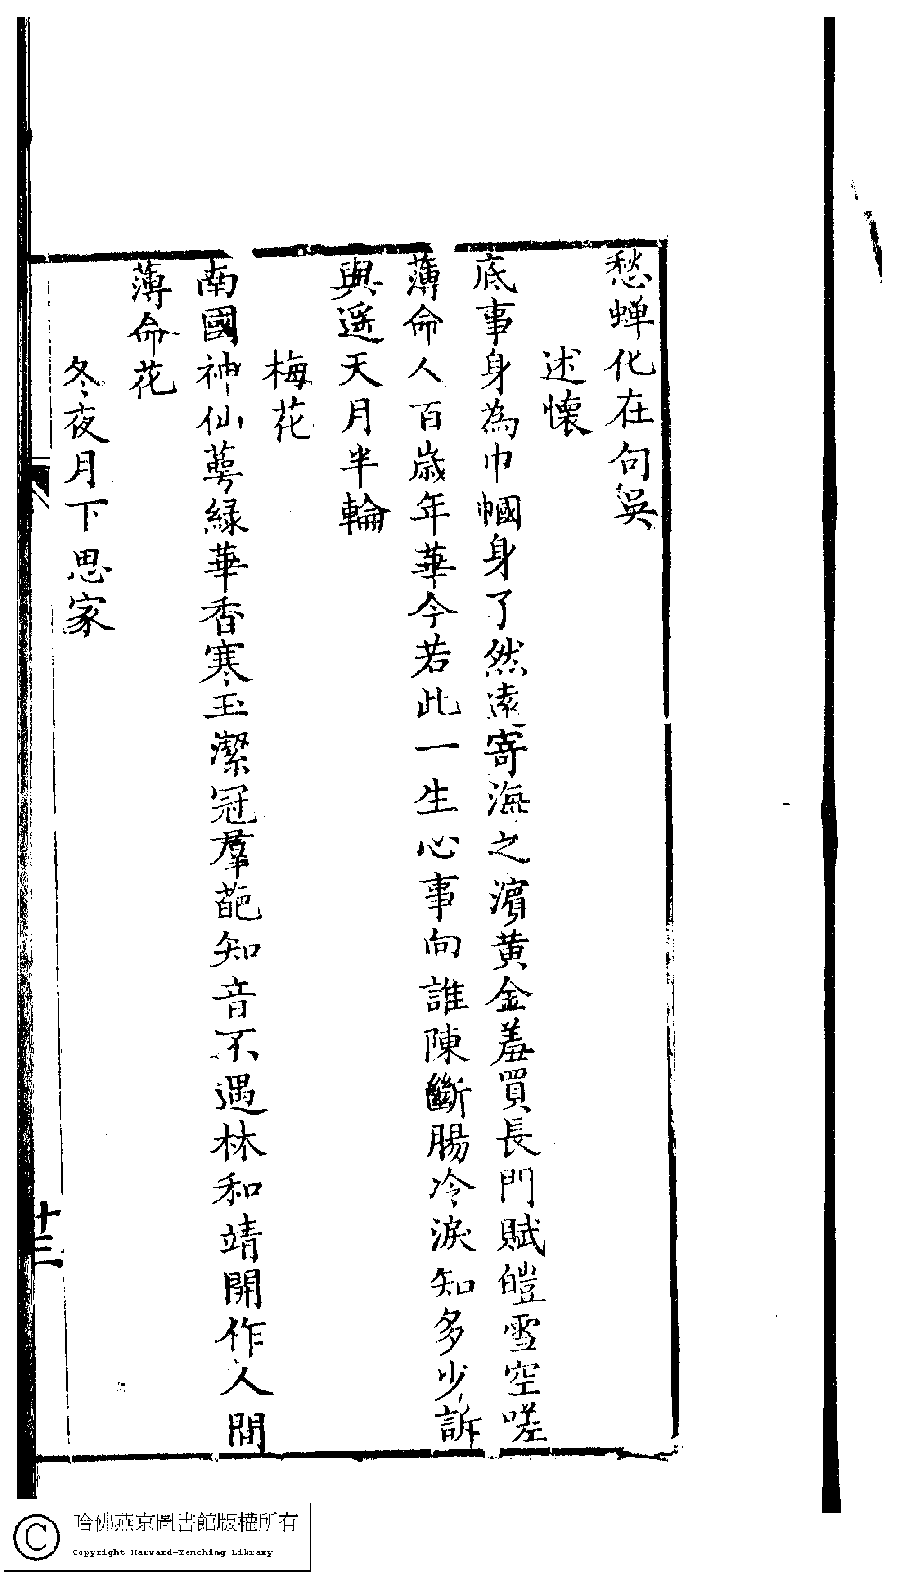 愁蟬化在句吳
述懷
底事身為巾幗身了然遠寄海之濱黄金羞買長門賦皚雪空嗟
薄命人百歲年華今若此一生心事向誰陳斷腸冷淚知多少訴
與遥天月半輪
梅花
南國神仙萼緑華香寒玉潔冠羣葩知音不遇林和靖開作人間
薄命花
冬夜月下思家
十三
哈佛燕京圖書館版權所有
Copyright Harvard-Yenching Library